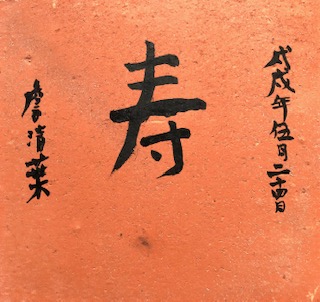 戊戌年伍月二十四日
寿
清葉